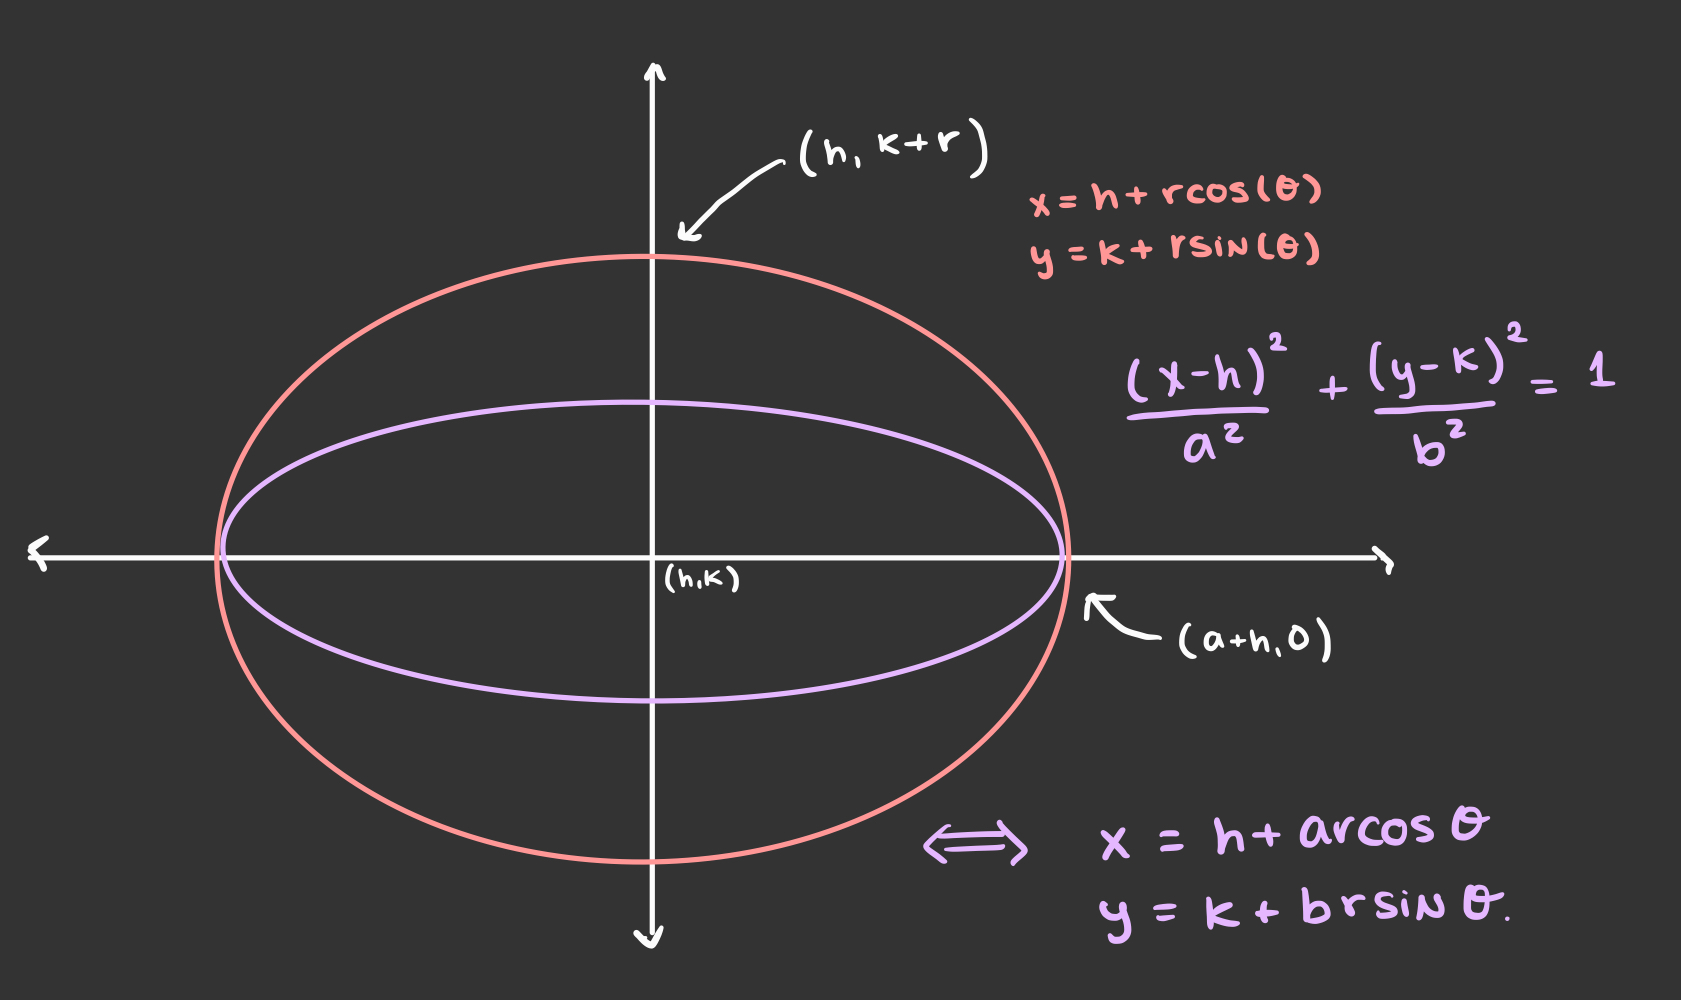 (h, k+r)
x = h + rcos(θ)
y = k + rsin(θ)
(x-h)²/a² + (y-k)²/b² = 1
(h,k)
(a+h, 0)
⟺ x = h + arcos θ
y = k + brsin θ.